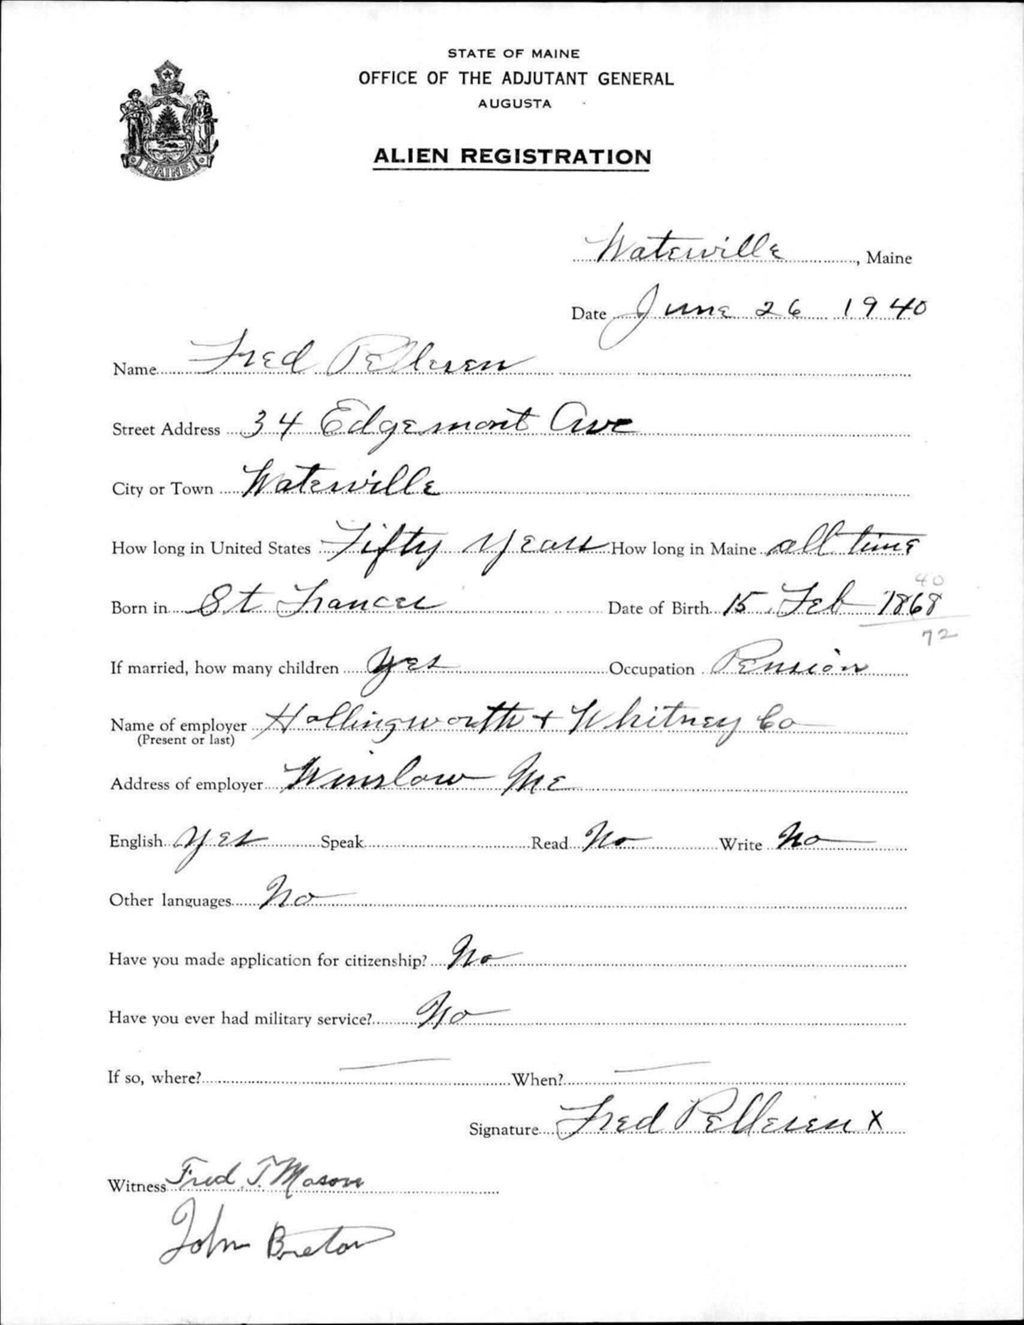 STATE OF MAINE
OFFICE OF THE ADJUTANT GENERAL
AUGUSTA
MAINE
ALIEN REGISTRATION
Waterville, Maine
Date June 26 1940
Name Fred Pelleren
Street Address 34 Edgemont Ave
City or Town Waterville
How long in United States Fifty Years How long in Maine all time
40
Born in St Frances Date of Birth 15 Feb 1868
72
If married, how many children Yes Occupation Pension
Name of employer Hollingworth + Whitney Co
(Present or last)
Address of employer Winslow Me
English Yes Speak Read No Write No
Other languages No
Have you made application for citizenship? No
Have you ever had military service? No
If so, where? — When? —
Signature Fred Pelleren X
Witness Fred T. Mason
John Breton